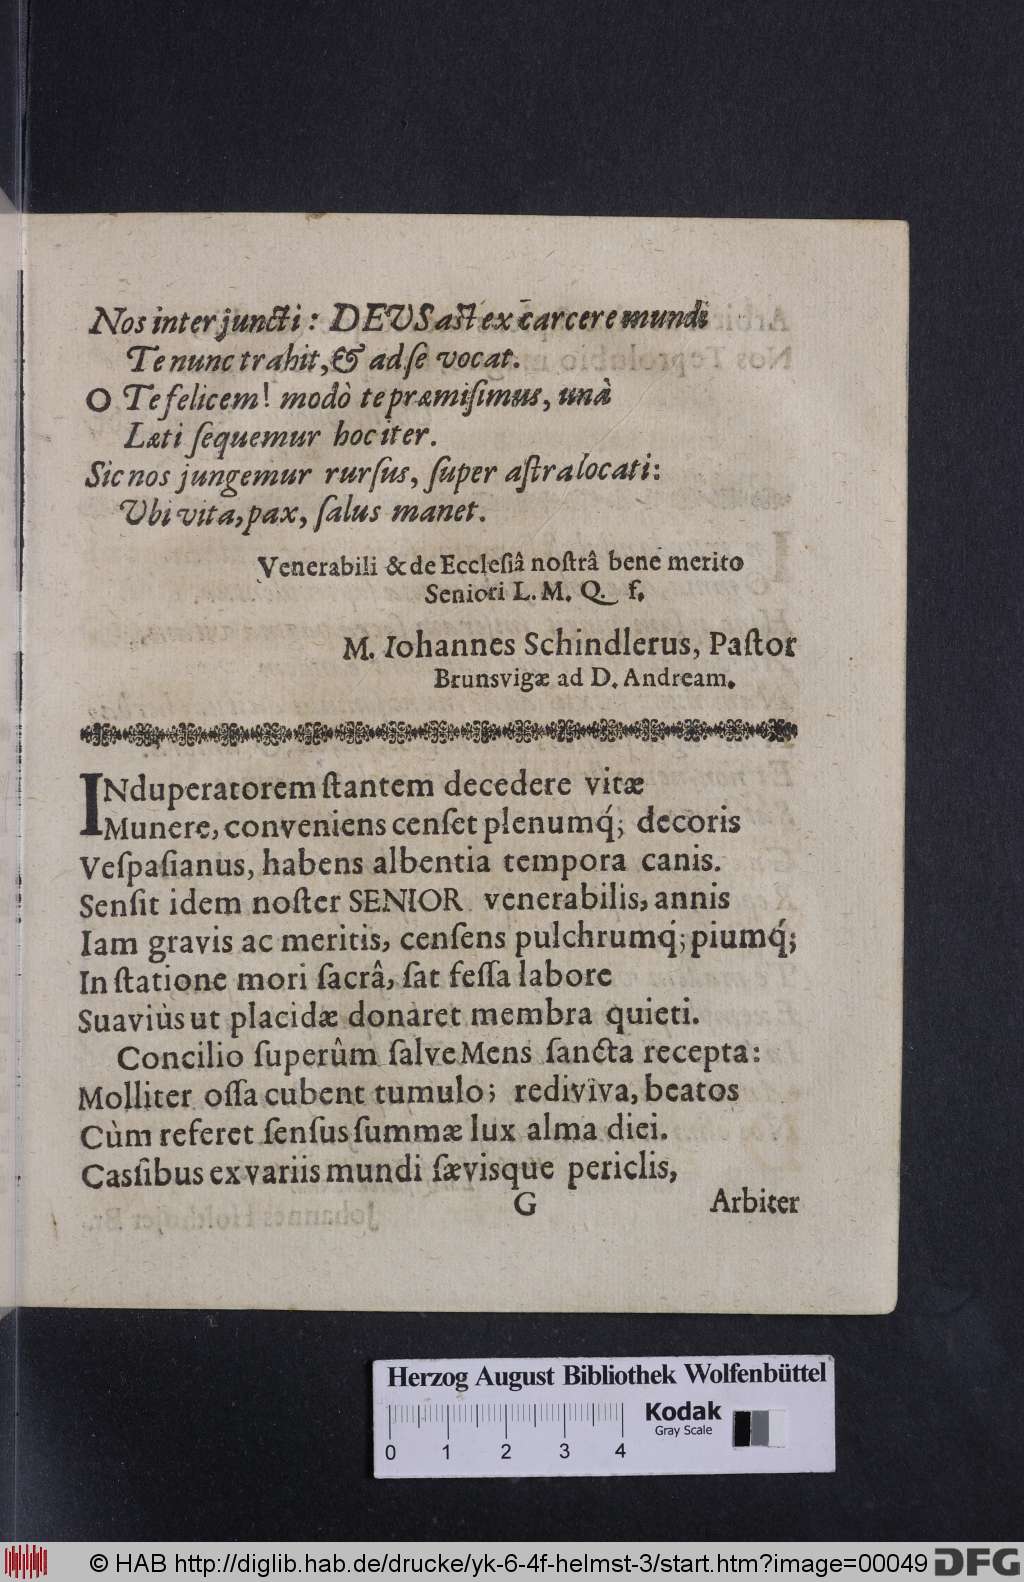 Nos inter juncti: DEUS ast ex carcere mundi
Te nunc trahit, & ad ſe vocat.
O Te felicem! modò te præmiſimus, unà
Læti ſequemur hoc iter.
Sic nos jungemur rurſus, ſuper aſtra locati:
Ubi vita, pax, ſalus manet.
Venerabili & de Eccleſiâ noſtrâ bene merito
Seniori L. M. Q. f.
M. Iohannes Schindlerus, Paſtor
Brunsvigæ ad D. Andream.
INduperatorem ſtantem decedere vitæ
Munere, conveniens cenſet plenumq́; decoris
Veſpaſianus, habens albentia tempora canis.
Senſit idem noſter SENIOR venerabilis, annis
Iam gravis ac meritis, cenſens pulchrumq́; piumq́;
In ſtatione mori ſacrâ, ſat feſſa labore
Suaviùs ut placidæ donaret membra quieti.
Concilio ſuperûm ſalve Mens ſancta recepta:
Molliter oſſa cubent tumulo; rediviva, beatos
Cùm referet ſenſus ſummæ lux alma diei.
Casſibus ex variis mundi ſævisque periclis,
G Arbiter
Herzog August Bibliothek Wolfenbüttel
Kodak
Gray Scale
0 1 2 3 4
© HAB http://diglib.hab.de/drucke/yk-6-4f-helmst-3/start.htm?image=00049 DFG